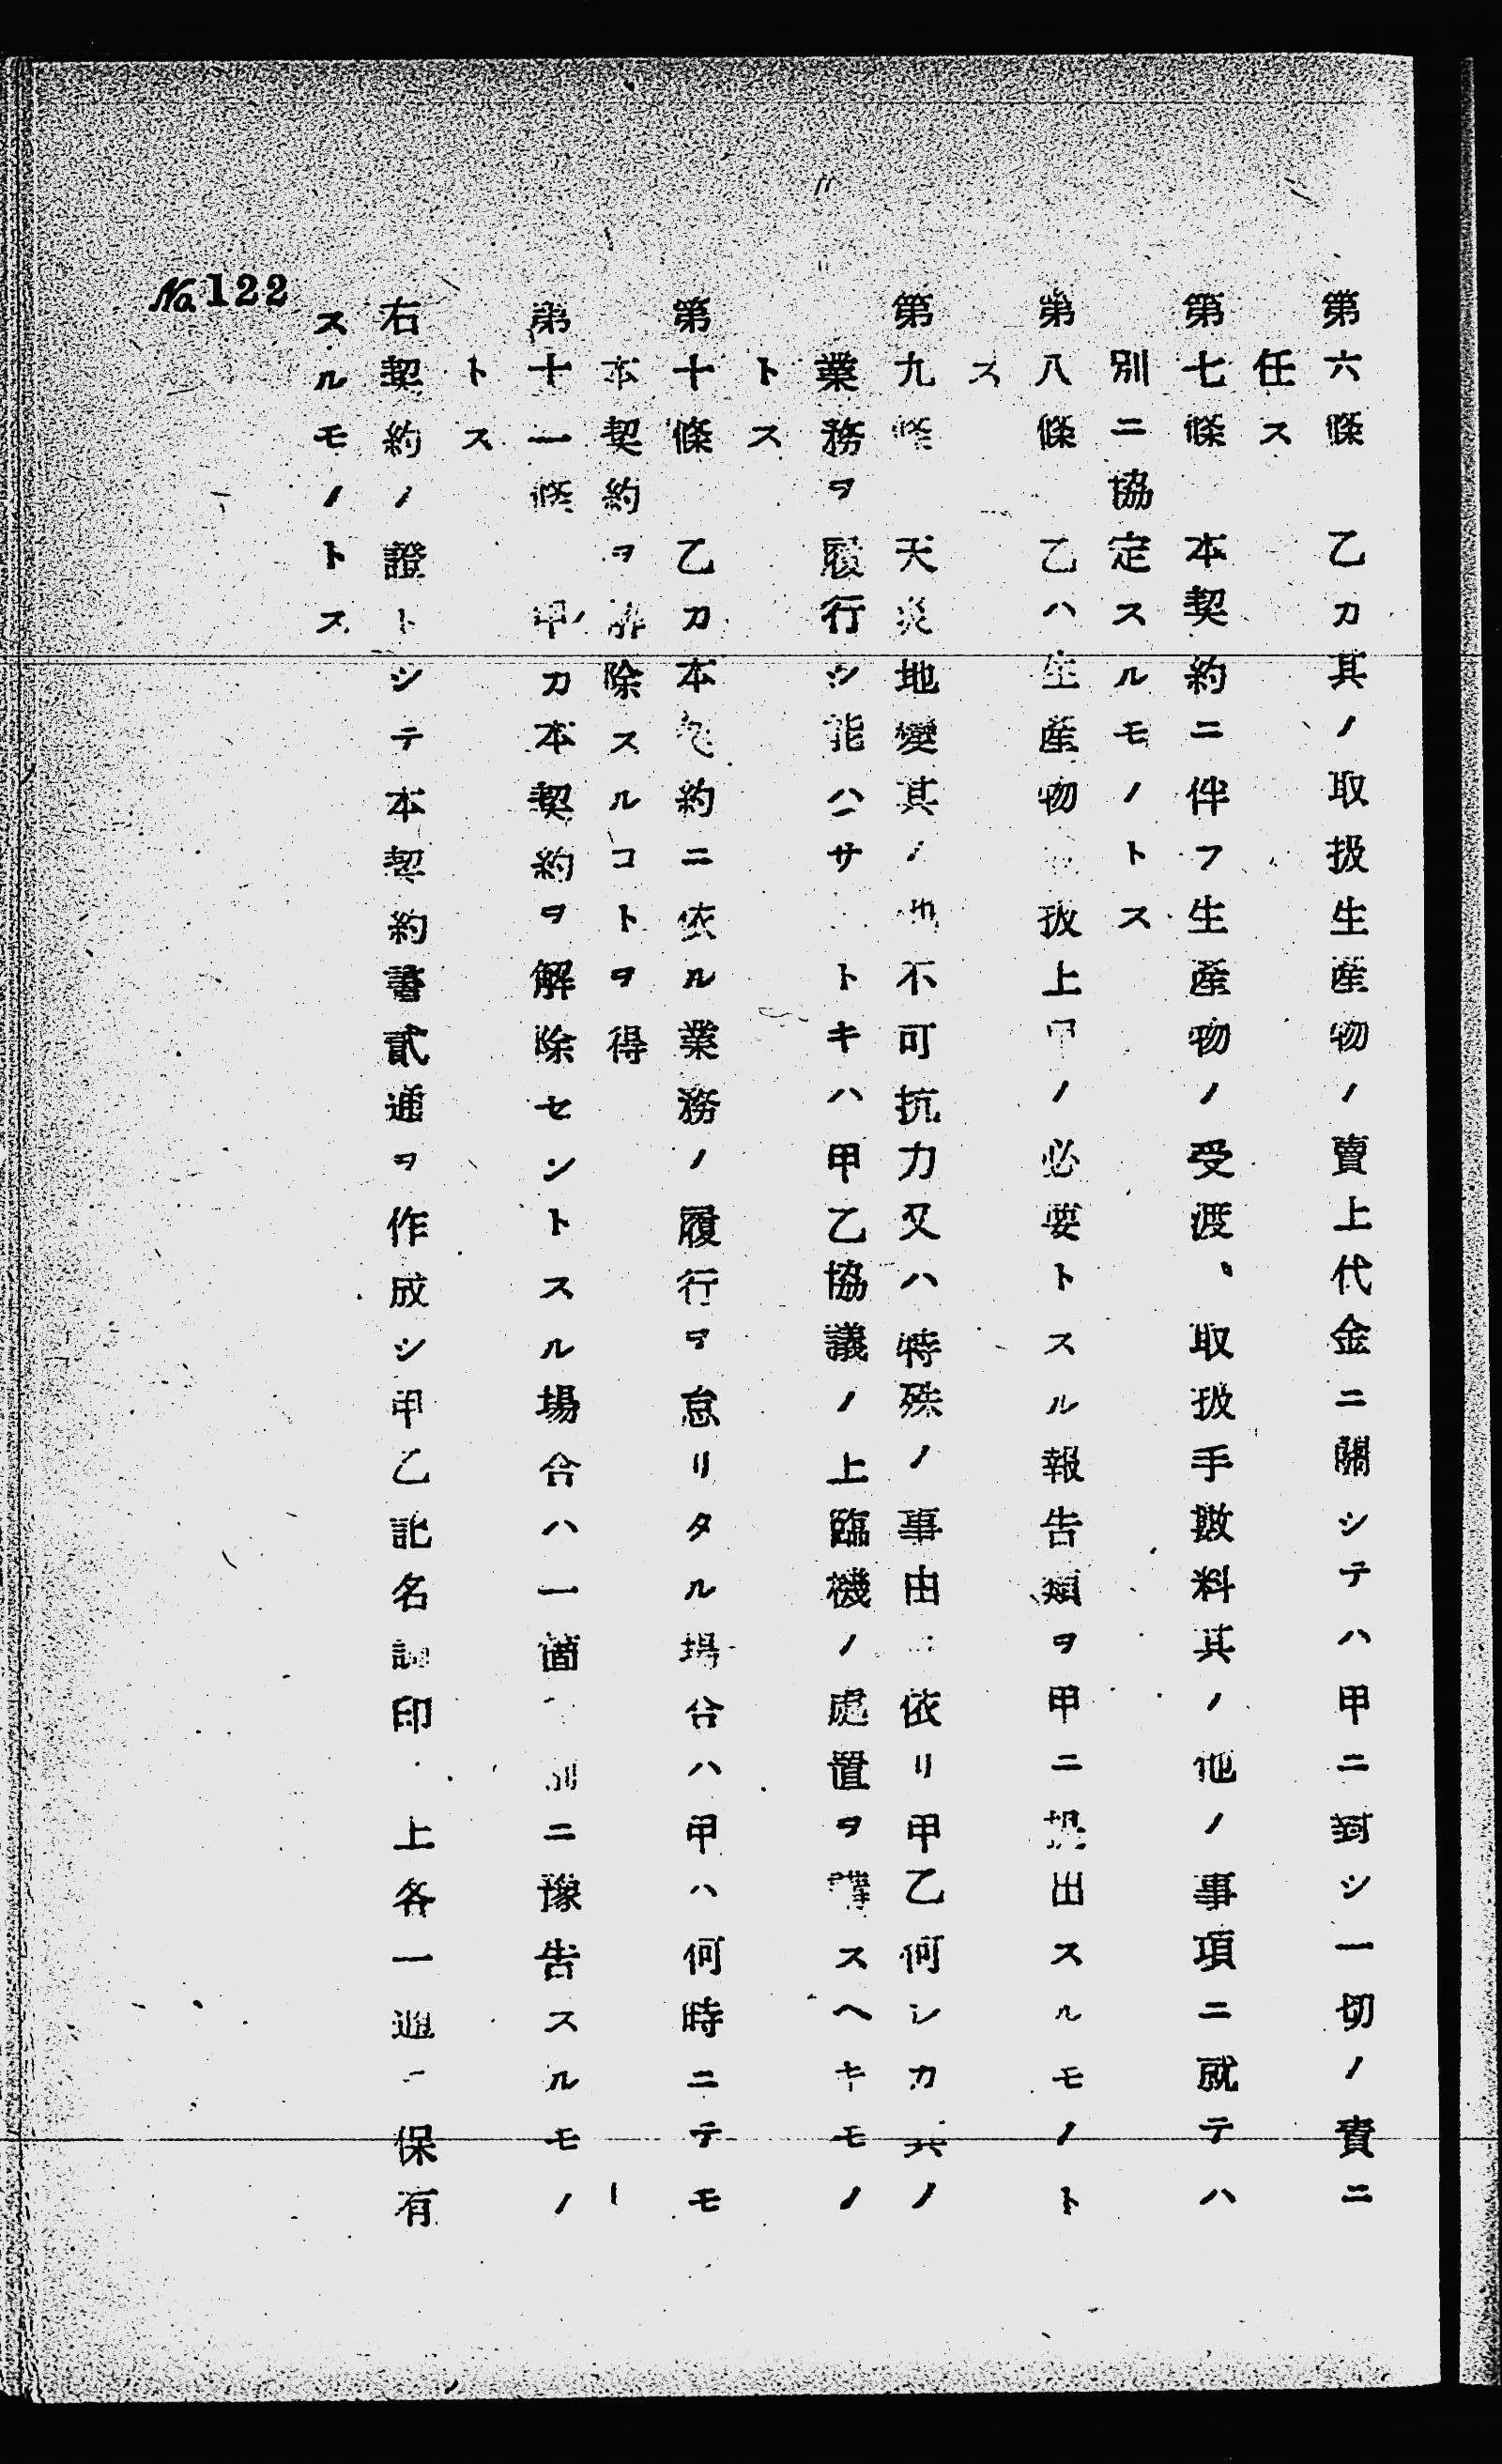 第六條 乙カ其ノ取扱生産物ノ賣上代金ニ關シテハ甲ニ對シ一切ノ責ニ
任ス
第七條 本契約ニ伴フ生産物ノ受渡、取扱手數料其ノ他ノ事項ニ就テハ
別ニ協定スルモノトス
第八條 乙ハ生産物 扱上甲ノ必要トスル報告類ヲ甲ニ提出スルモノト
ス
第九條 天災地變其ノ他不可抗力又ハ特殊ノ事由ニ依リ甲乙何レカ其ノ
業務ヲ履行シ能ハサ トキハ甲乙協議ノ上臨機ノ處置ヲ講スヘキモノ
トス
第十條 乙カ本契約ニ依ル業務ノ履行ヲ怠リタル場合ハ甲ハ何時ニテモ
本契約ヲ解除スルコトヲ得
第十一條 甲カ本契約ヲ解除セントスル場合ハ一箇 前ニ豫告スルモノ
トス
右契約ノ證トシテ本契約書貳通ヲ作成シ甲乙記名調印 上各一通 保有
スルモノトス
No.122